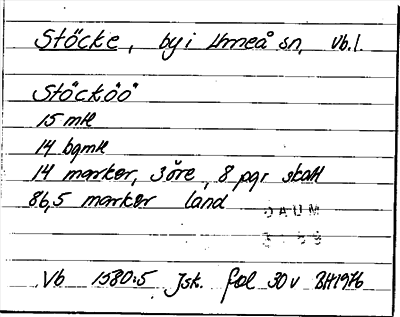 Stöcke, by i Umeå sn, Vb.l.
Stöcköö
15 mtl
14 bgmtl
14 marker, 3 öre, 8 pgr skatt
86,5 marker land
DAUM
Vb 1580:5 Jsk. fol 30 v BH 1976